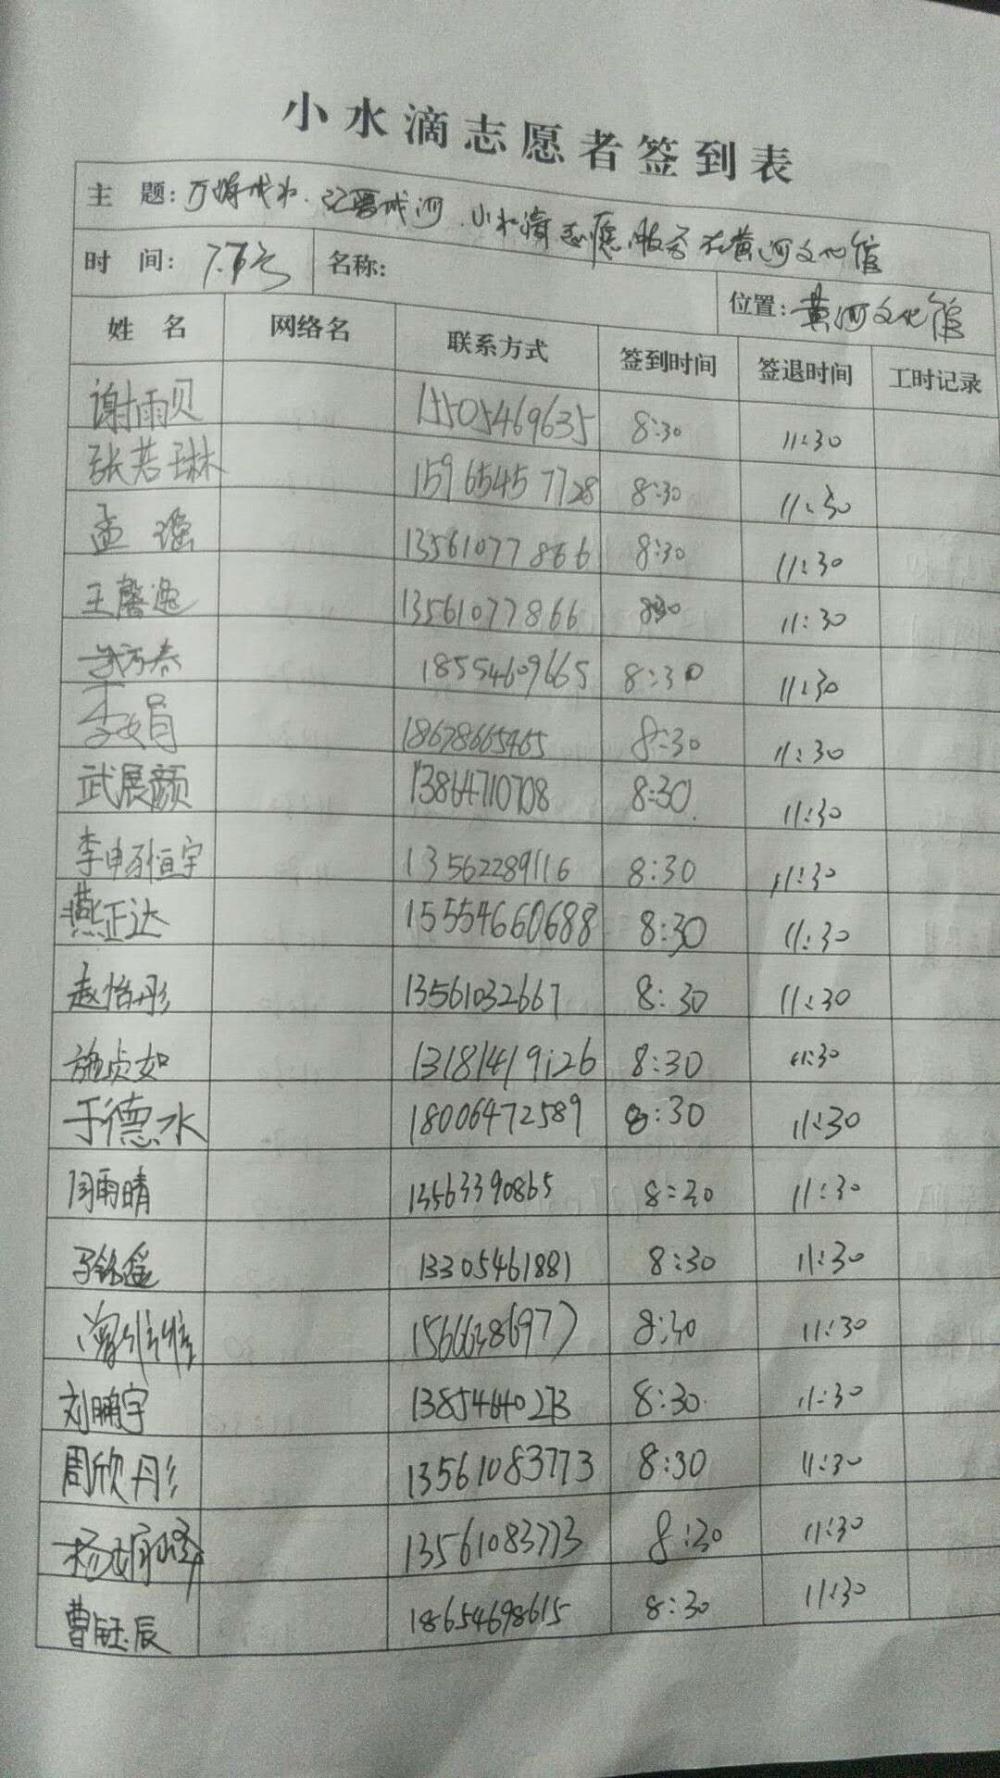 小水滴志愿者签到表
主 题: 小水滴志愿服务在黄河文化馆
时 间: 名称: 位置: 黄河文化馆
姓 名 网络名 联系方式 签到时间 签退时间 工时记录
谢雨贝 15505469635 8:30 11:30
张若琳 15965457728 8:30 11:30
孟瑶 13561077866 8:30 11:30
王馨逸 13561077866 8:30 11:30
18554609665 8:30 11:30
李娟 18678665465 8:30 11:30
武展颜 13864710708 8:30 11:30
李申孙恒宇 13562289116 8:30 11:30
燕正达 15554660688 8:30 11:30
赵怡彤 13561032667 8:30 11:30
施贞如 13181419126 8:30 11:30
于德水 18006472589 8:30 11:30
闫雨晴 13563390865 8:30 11:30
13305461881 8:30 11:30
8:30 11:30
刘鹏宇 8:30 11:30
周欣彤 13561083773 8:30 11:30
13561083773 8:30 11:30
曹钰辰 18654698615 8:30 11:30